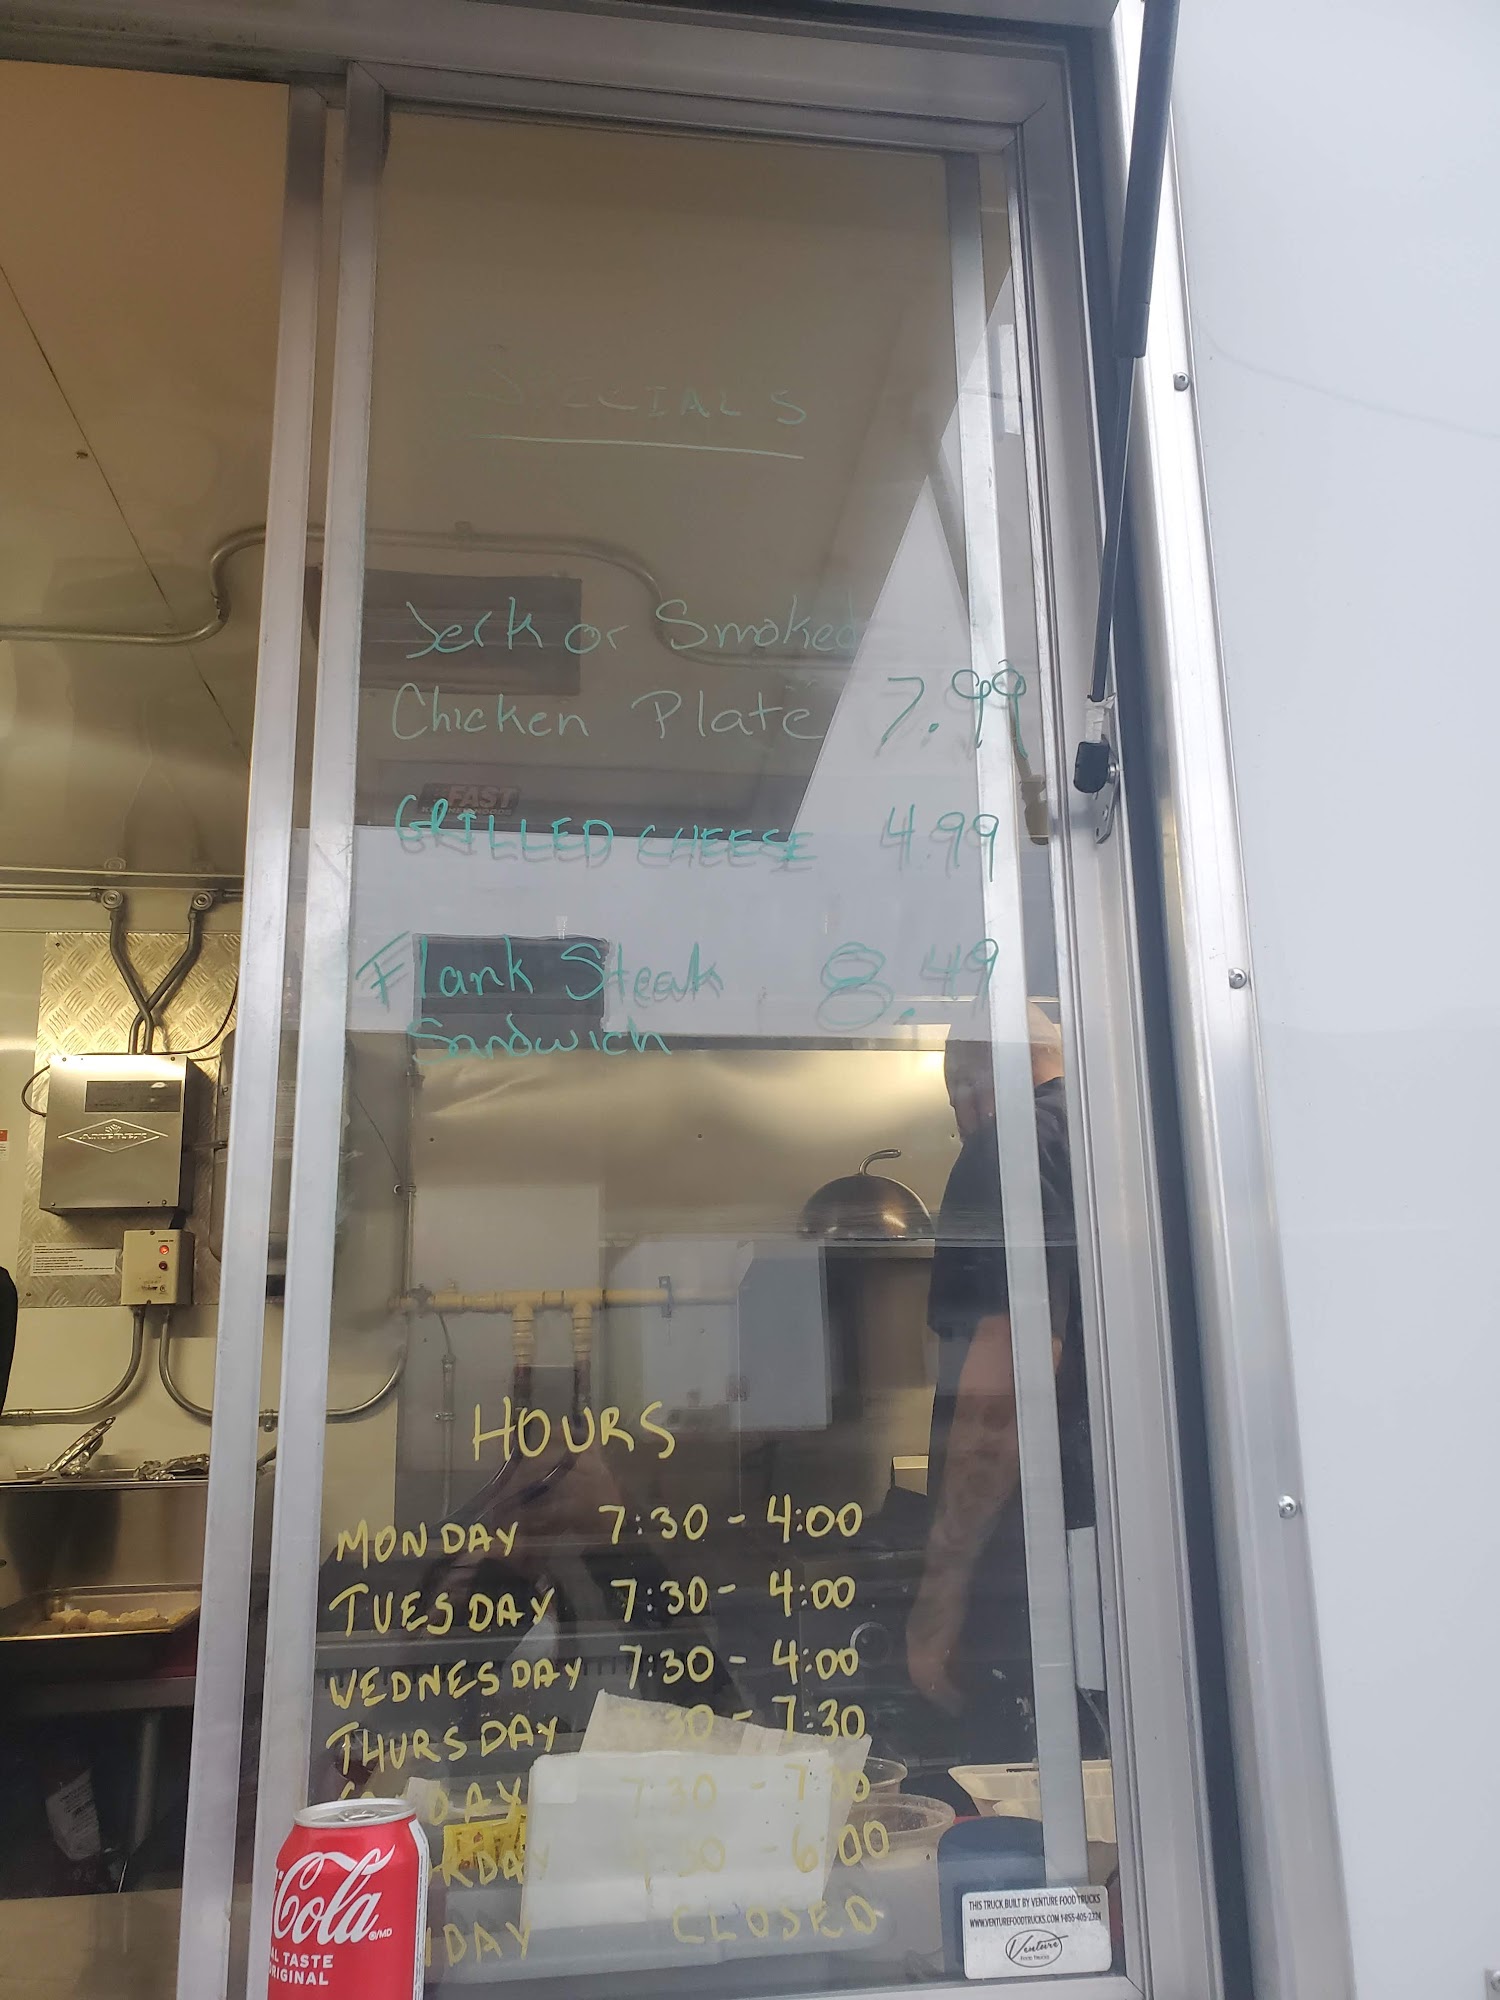 SPECIALS
Jerk or Smoked
Chicken Plate 7.99
FAST
GRILLED CHEESE 4.99
Flank Steak 8.49
Sandwich
HOURS
MONDAY 7:30 - 4:00
TUESDAY 7:30 - 4:00
WEDNESDAY 7:30 - 4:00
THURSDAY 7:30 - 7:30
DAY 7:30 - 7:30
RDAY 30 - 6:00
DAY CLOSED
Cola
TASTE
ORIGINAL
THIS TRUCK BUILT BY VENTURE FOOD TRUCKS
WWW.VENTUREFOODTRUCKS.COM 1-855-405-2324
Venture
FOOD TRUCKS